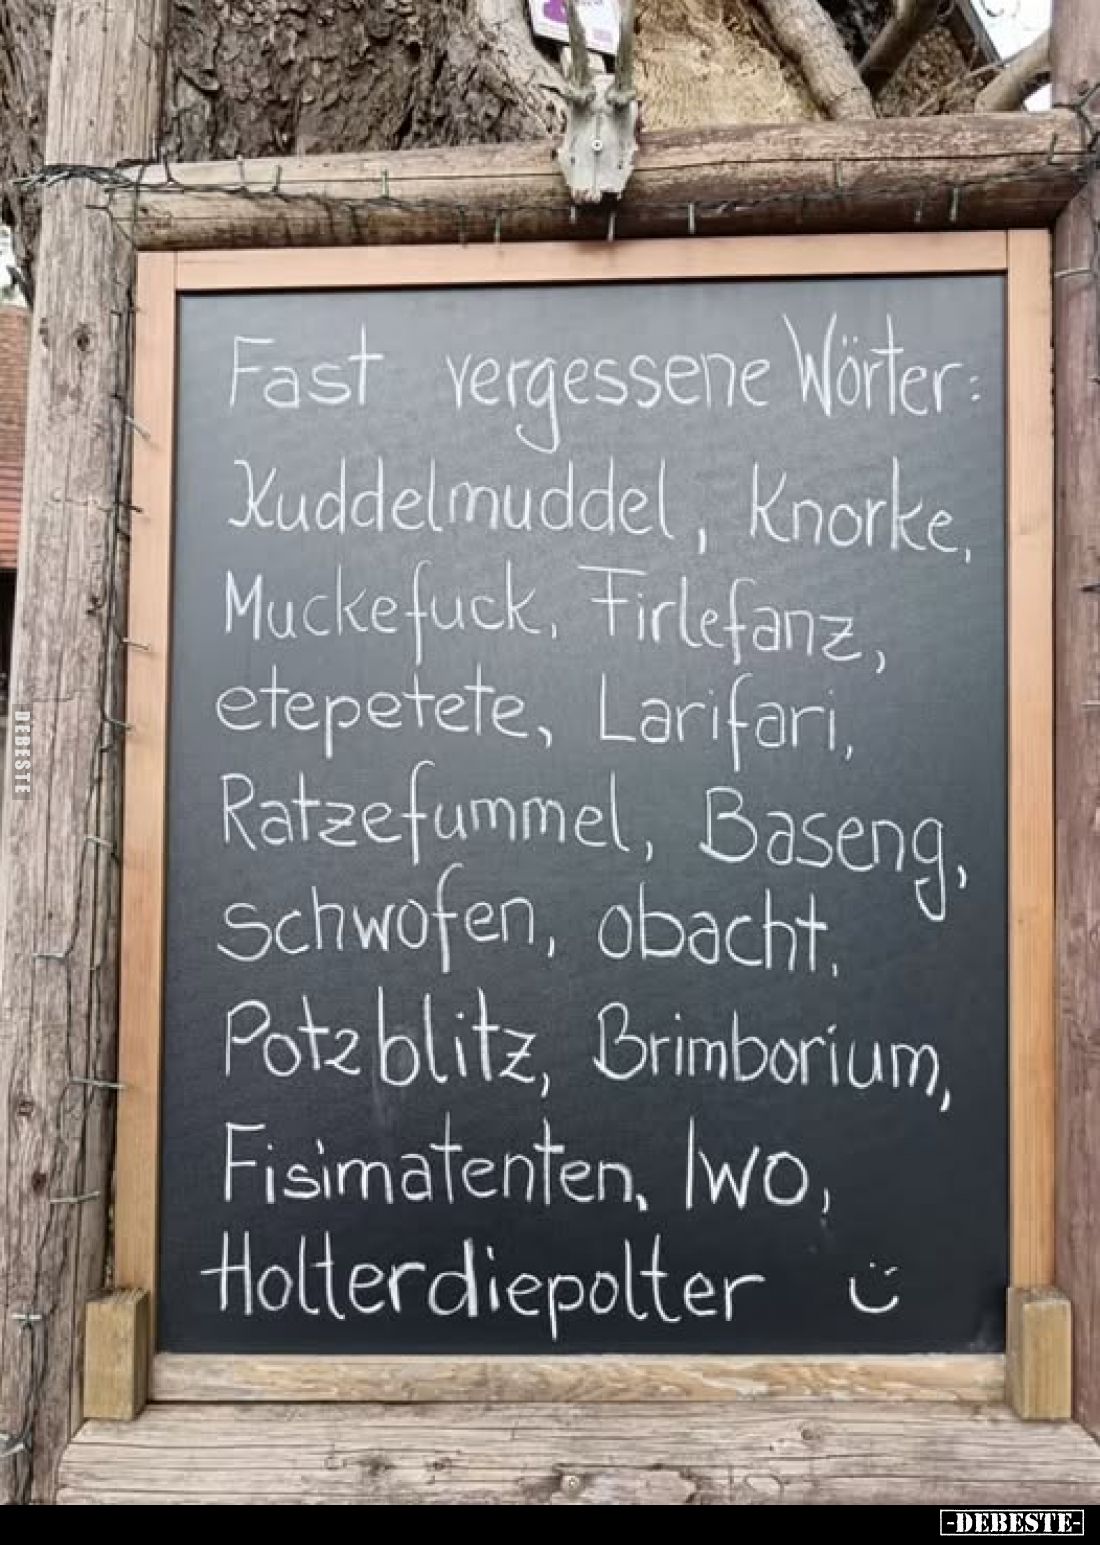 Fast vergessene Wörter:
Kuddelmuddel, Knorke,
Muckefuck, Firlefanz,
etepetete, Larifari,
Ratzefummel, Baseng,
schwofen, obacht,
Potzblitz, Brimborium,
Fisimatenten, IWO,
Holterdiepolter ü
DEBESTE
-DEBESTE-